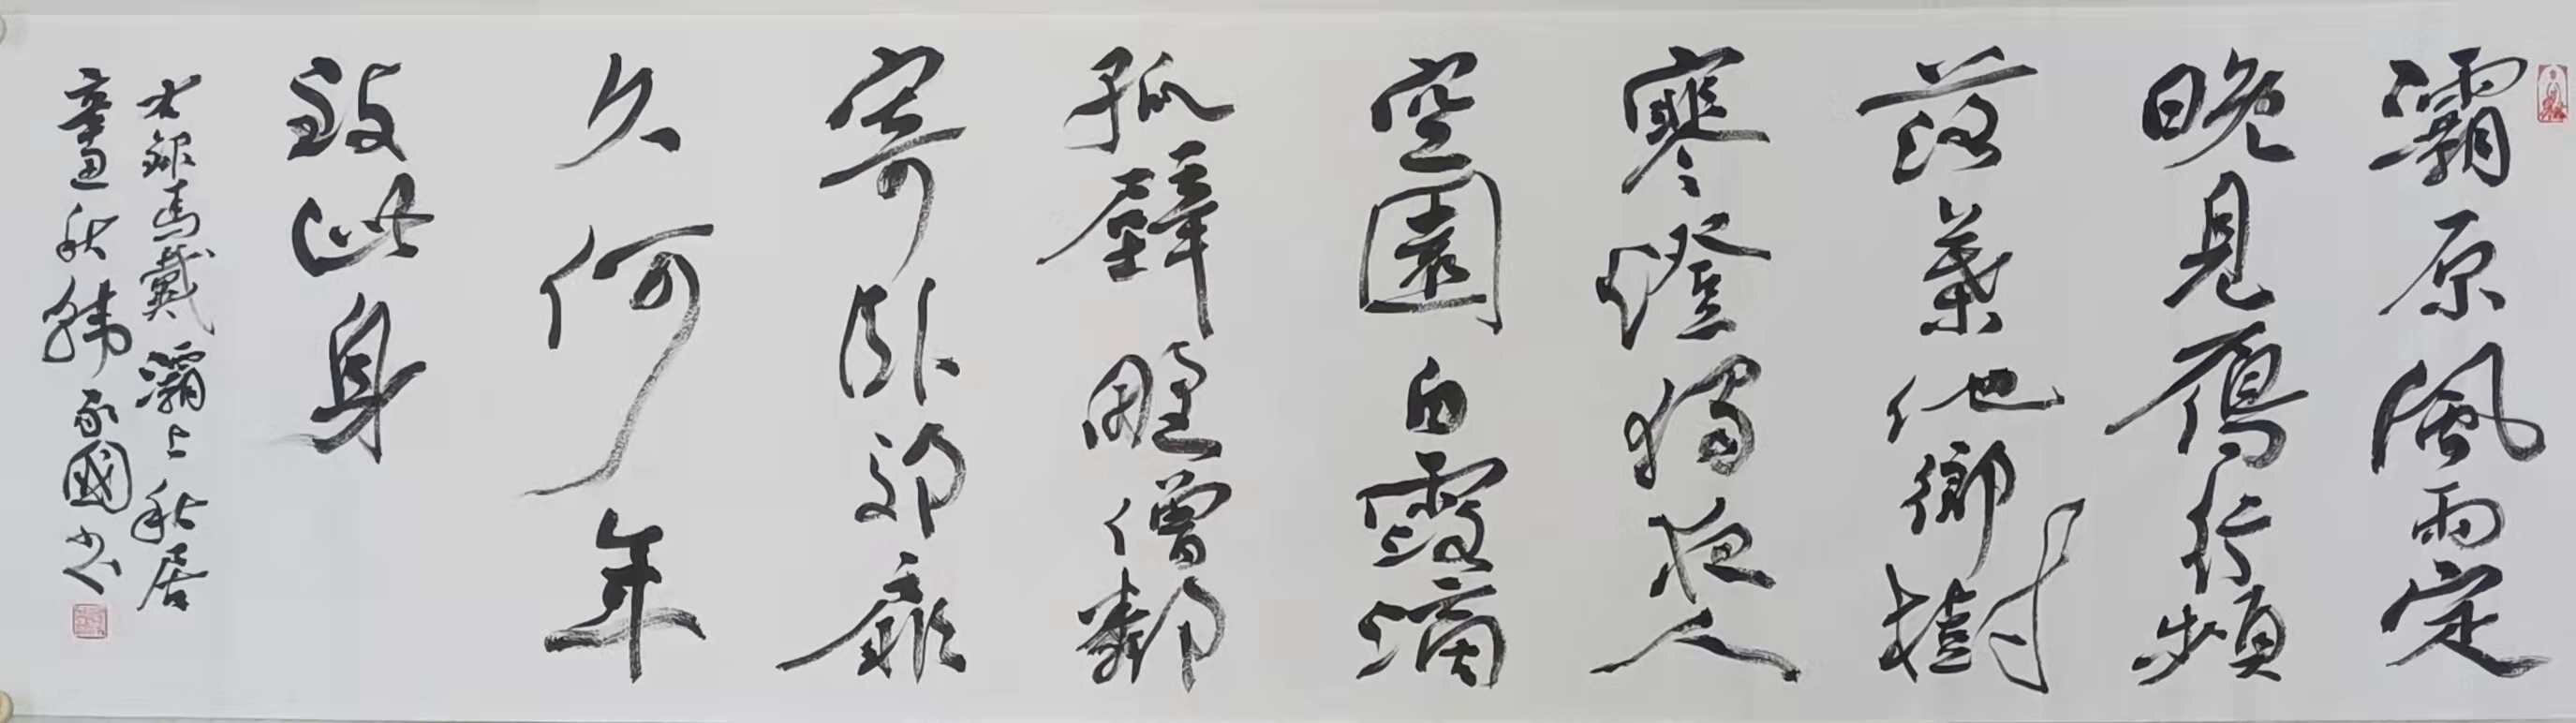 灞原風雨定
晚見鴈行頻
落葉他鄉樹
寒燈獨夜人
空園白露滴
孤壁野僧鄰
寄臥郊扉
久何年
致此身
右錄馬戴灞上秋居
秋韓國书